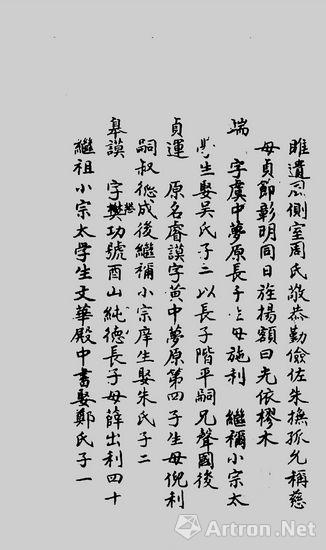 睢遺風側室周氏敬恭勤儉佐朱撫孤允稱慈
母貞節彰明同日旌揚額曰光依樛木
端 字虞中夢原長子 母施利 繼禰小宗太
學生娶吳氏子二以長子階平嗣兄聲國後
貞運 原名睿謨字黃中夢原第四子生母倪利
嗣叔德成後繼禰小宗庠生娶朱氏子二
皋謨 字樊功號酉山純德長子母薛出利四十
繼祖小宗太學生文華殿中書娶鄭氏子一
Artron.Net